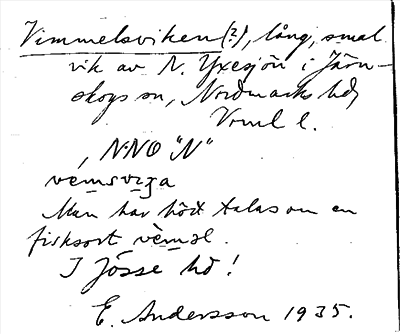 Vimmelsviken(?), lång, smal
vik av N. Yxesjön i Järn-
skogs sn, Nordmarks hd,
Vrml l.
NNO "N"
vèmsviga
Man har hört talas om en
fisksort vèməl.
I Jösse hd!
E. Andersson 1935.